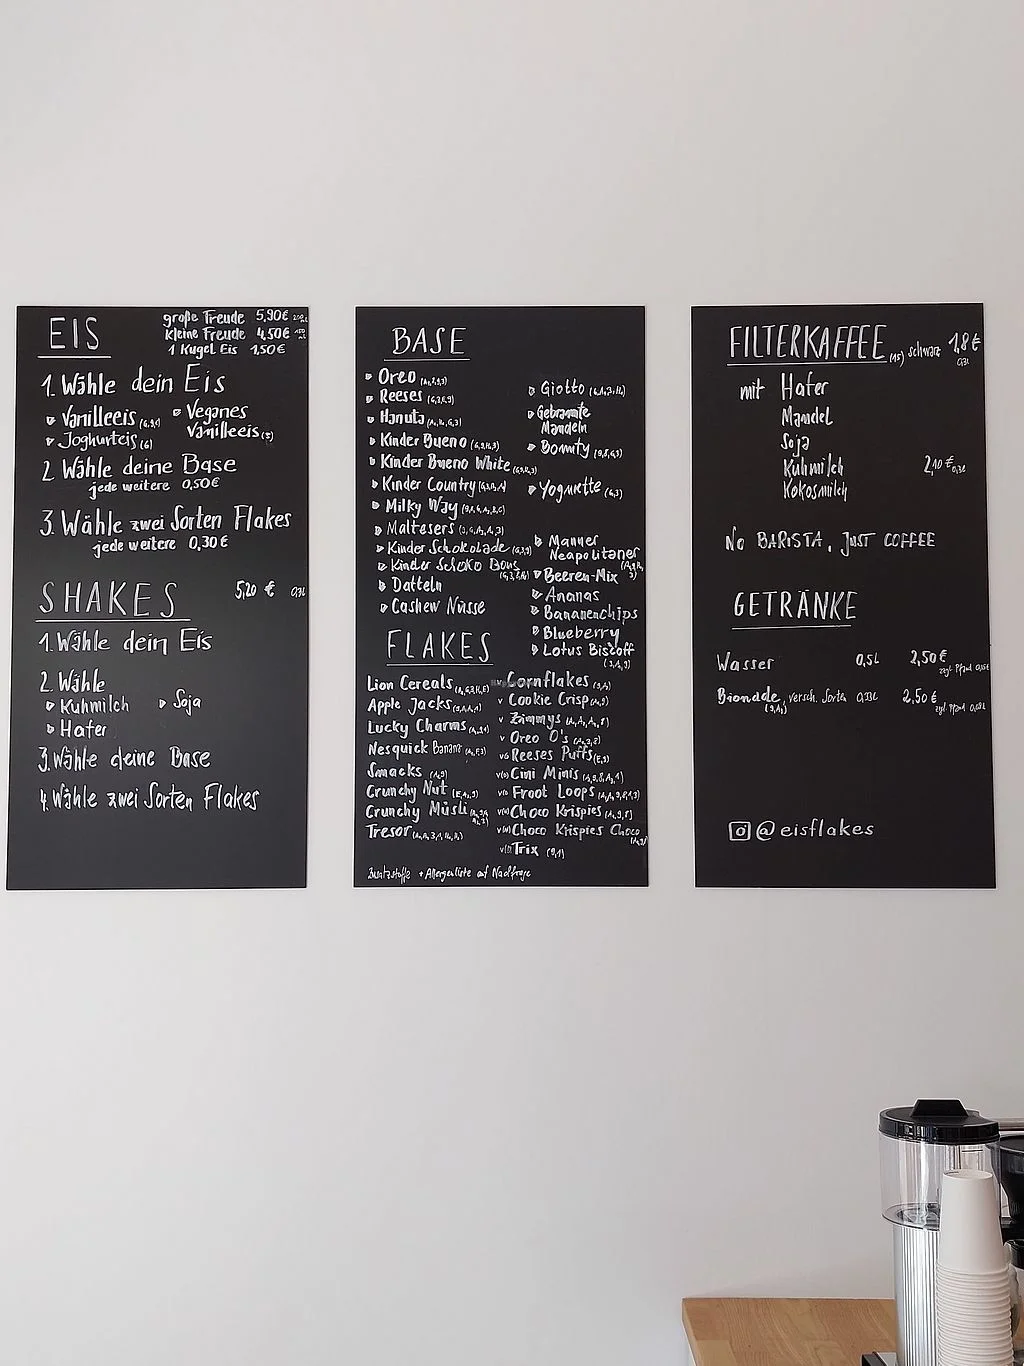 EIS
große Freude 5,90€
kleine Freude 4,50€
1 Kugel Eis 1,50€
1. Wähle dein Eis
Vanilleeis
Joghurteis (G)
Veganes
Vanilleeis
2. Wähle deine Base
jede weitere 0,50€
3. Wähle zwei Sorten Flakes
jede weitere 0,30€
SHAKES 5,20 €
1. Wähle dein Eis
2. Wähle
Kuhmilch
Soja
Hafer
3. Wähle deine Base
4. Wähle zwei Sorten Flakes
BASE
Oreo
Reeses
Hanuta
Kinder Bueno
Kinder Bueno White
Kinder Country
Milky Way
Maltesers
Kinder Schokolade
Kinder Schoko Bons
Datteln
Cashew Nüsse
Giotto
Gebrannte
Mandeln
Bounty
Yogurette
Manner
Neapolitaner
Beeren-Mix
Ananas
Bananenchips
Blueberry
Lotus Biscoff
FLAKES
Lion Cereals
Apple Jacks
Lucky Charms
Nesquick Banana
Smacks
Crunchy Nut
Crunchy Müsli
Tresor
Cornflakes
v Cookie Crisp
v Zimmys
v Oreo O's
Reeses Puffs
Cini Minis
Froot Loops
Choco Krispies
Choco Krispies Choco
Trix
Zusatzstoffe + Allergenliste auf Nachfrage
FILTERKAFFEE (15) schwarz 1,8€
mit Hafer
Mandel
Soja
Kuhmilch 2,10€
Kokosmilch
NO BARISTA, JUST COFFEE
GETRÄNKE
Wasser 0,5L 2,50€
zzgl. Pfand
Bionade, versch. Sorten 0,33L 2,50€
zzgl. Pfand
@eisflakes